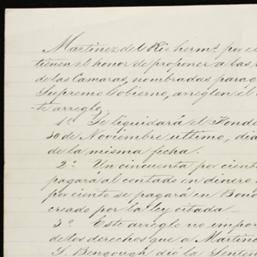 Martinez del Rio hermos. por
tienen el honor de proponer a las
de las Camaras, nombradas para
Supremo Gobierno, arreglen el
te arreglo.
1º Se liquidará el Fondo
30 de Noviembre ultimo, dia
de la misma fecha.
2º Un cincuenta por ciento
pagará al contado en dinero
por ciento se pagará en Bonos
creado por la ley citada.
3º Este arreglo no impor
de los derechos que a Martinez
S. Bengough dió la Senten